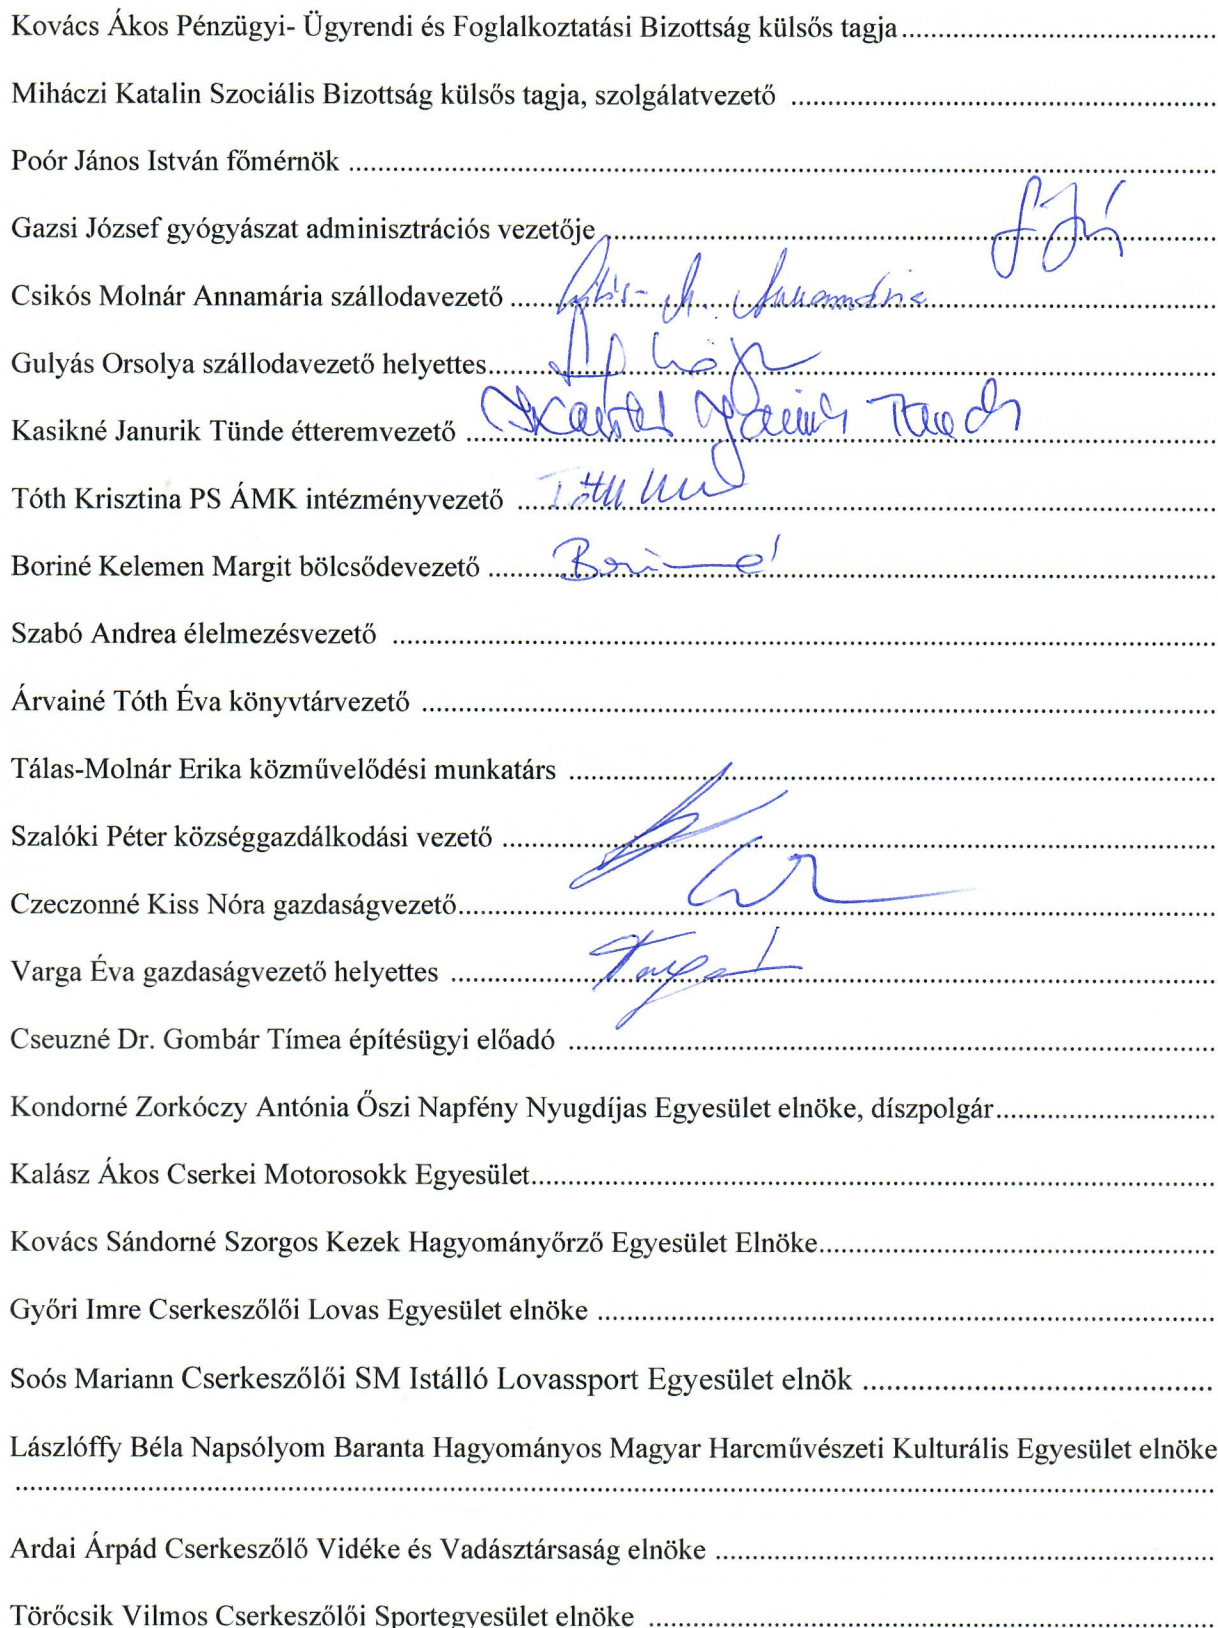 Kovács Ákos Pénzügyi- Ügyrendi és Foglalkoztatási Bizottság külsős tagja
Miháczi Katalin Szociális Bizottság külsős tagja, szolgálatvezető
Poór János István főmérnök
Gazsi József gyógyászat adminisztrációs vezetője
Csikós Molnár Annamária szállodavezető
Gulyás Orsolya szállodavezető helyettes
Kasikné Janurik Tünde étteremvezető
Tóth Krisztina PS ÁMK intézményvezető
Boriné Kelemen Margit bölcsődevezető Boriné
Szabó Andrea élelmezésvezető
Árvainé Tóth Éva könyvtárvezető
Tálas-Molnár Erika közművelődési munkatárs
Szalóki Péter községgazdálkodási vezető
Czeczonné Kiss Nóra gazdaságvezető
Varga Éva gazdaságvezető helyettes
Cseuzné Dr. Gombár Tímea építésügyi előadó
Kondorné Zorkóczy Antónia Őszi Napfény Nyugdíjas Egyesület elnöke, díszpolgár
Kalász Ákos Cserkei Motorosokk Egyesület
Kovács Sándorné Szorgos Kezek Hagyományőrző Egyesület Elnöke
Győri Imre Cserkeszőlői Lovas Egyesület elnöke
Soós Mariann Cserkeszőlői SM Istálló Lovassport Egyesület elnök
Lászlóffy Béla Napsólyom Baranta Hagyományos Magyar Harcművészeti Kulturális Egyesület elnöke
Ardai Árpád Cserkeszőlő Vidéke és Vadásztársaság elnöke
Törőcsik Vilmos Cserkeszőlői Sportegyesület elnöke